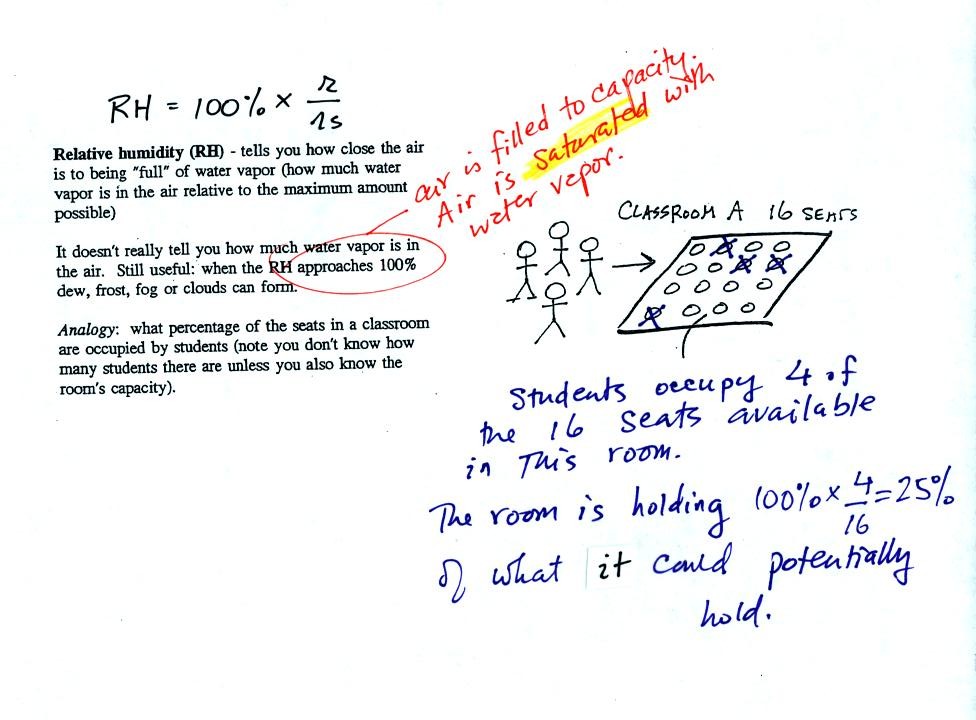 RH = 100% × r/rs
Relative humidity (RH) - tells you how close the air
is to being "full" of water vapor (how much water
vapor is in the air relative to the maximum amount
possible)
It doesn't really tell you how much water vapor is in
the air. Still useful: when the RH approaches 100%
dew, frost, fog or clouds can form.
Analogy: what percentage of the seats in a classroom
are occupied by students (note you don't know how
many students there are unless you also know the
room's capacity).
air is filled to capacity.
Air is saturated with
water vapor.
CLASSROOM A 16 SEATS
Students occupy 4 of
the 16 seats available
in This room.
The room is holding 100% × 4/16 = 25%
of what it could potentially
hold.